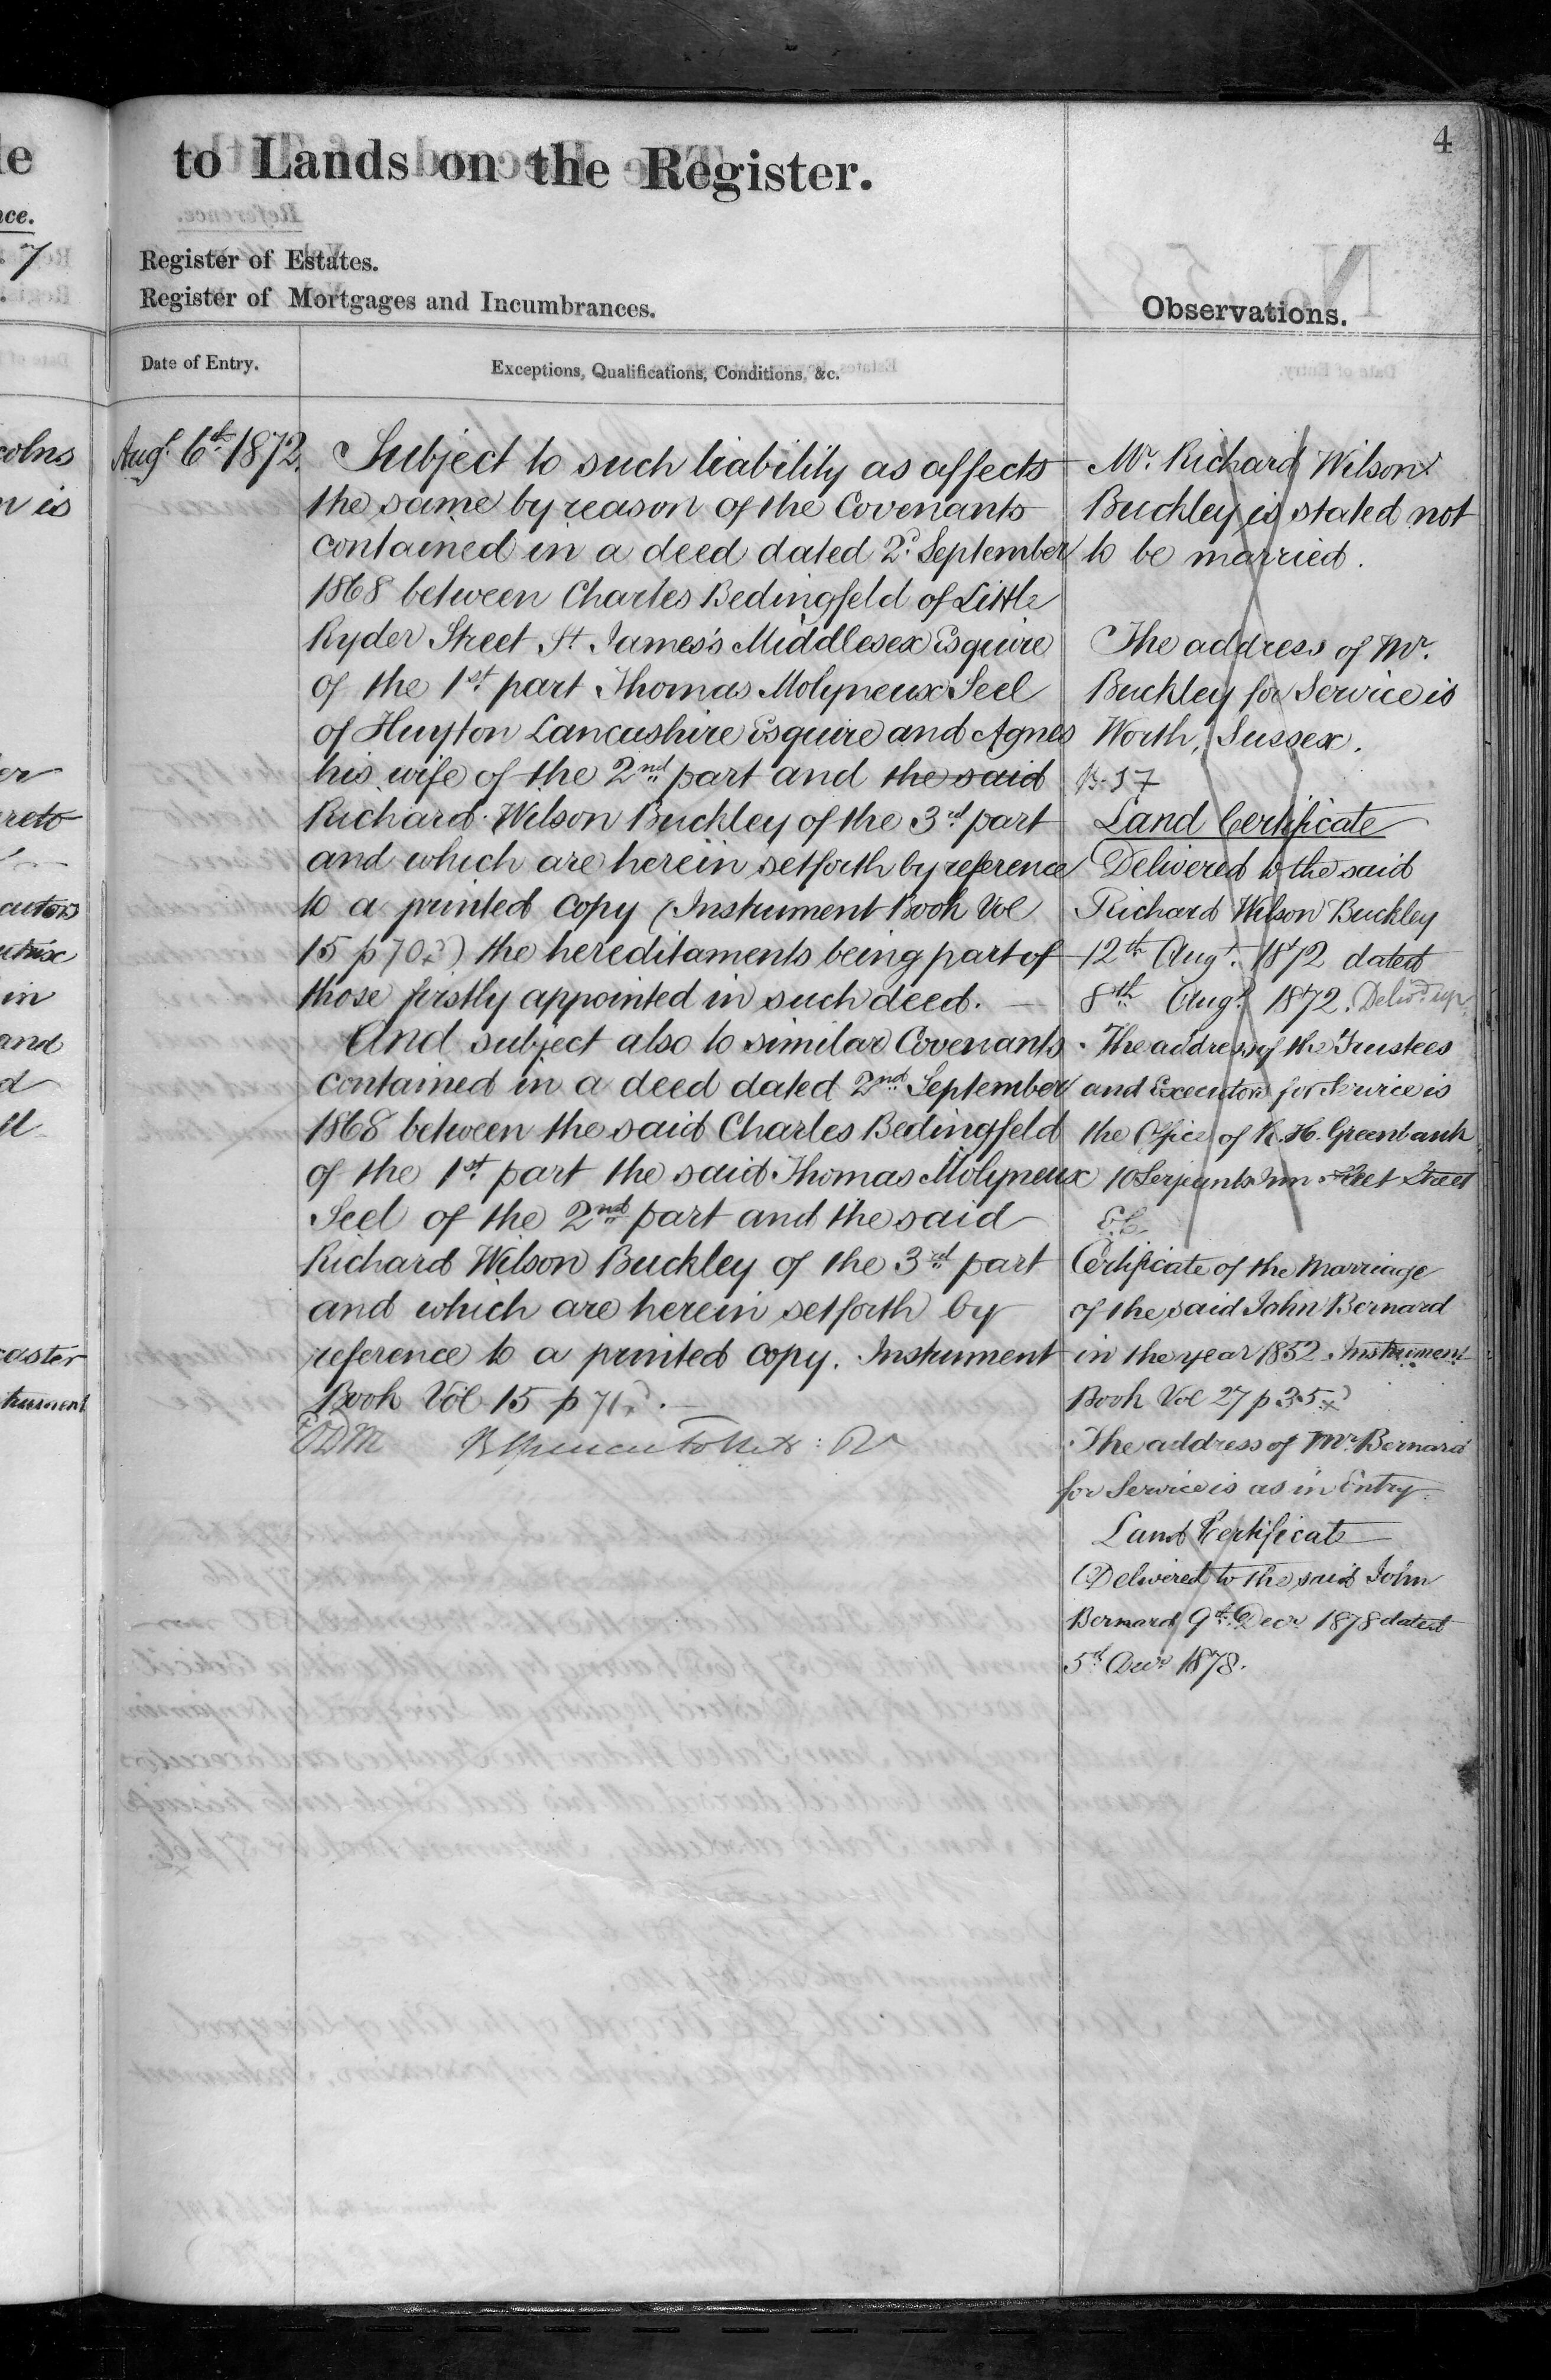 4
to Lands on the Register.
Register of Estates.
Register of Mortgages and Incumbrances.
Observations.
Date of Entry.
Exceptions, Qualifications, Conditions, &c.
Augt. 6th 1872.
Subject to such liability as affects
the same by reason of the Covenants
contained in a deed dated 2d. September
1868 between Charles Bedingfeld of Little
Ryder Street St. James's Middlesex Esquire
of the 1st. part Thomas Molyneux Seel
of Huyton Lancashire Esquire and Agnes
his wife of the 2nd part and the said
Richard Wilson Buckley of the 3rd part
and which are herein setforth by reference
to a printed Copy (Instrument Book Vol
15 p 70) the hereditaments being part of
those firstly appointed in such deed.
And subject also to similar Covenants
contained in a deed dated 2nd September
1868 between the said Charles Bedingfeld
of the 1st. part the said Thomas Molyneux
Seel of the 2nd part and the said
Richard Wilson Buckley of the 3rd part
and which are herein setforth by
reference to a printed Copy. Instrument
Book Vol 15 p 71.
Mr. Richard Wilson
Buckley is stated not
to be married.
The address of Mr.
Buckley for Service is
Worth, Sussex.
Land Certificate
Delivered to the said
Richard Wilson Buckley
12th Augt. 1872 dated
8th Augt. 1872. Delivd. up
The address of the Trustees
and Executors for Service is
the Office of R. H. Greenbank
10 Serjeants Inn Fleet Street
E.C.
Certificate of the Marriage
of the said John Bernard
in the year 1852. Instrument
Book Vol 27 p 35
The address of Mr. Bernard
for Service is as in Entry.
Land Certificate
Delivered to the said John
Bernard 9th Decr 1878 dated
5th Decr 1878.